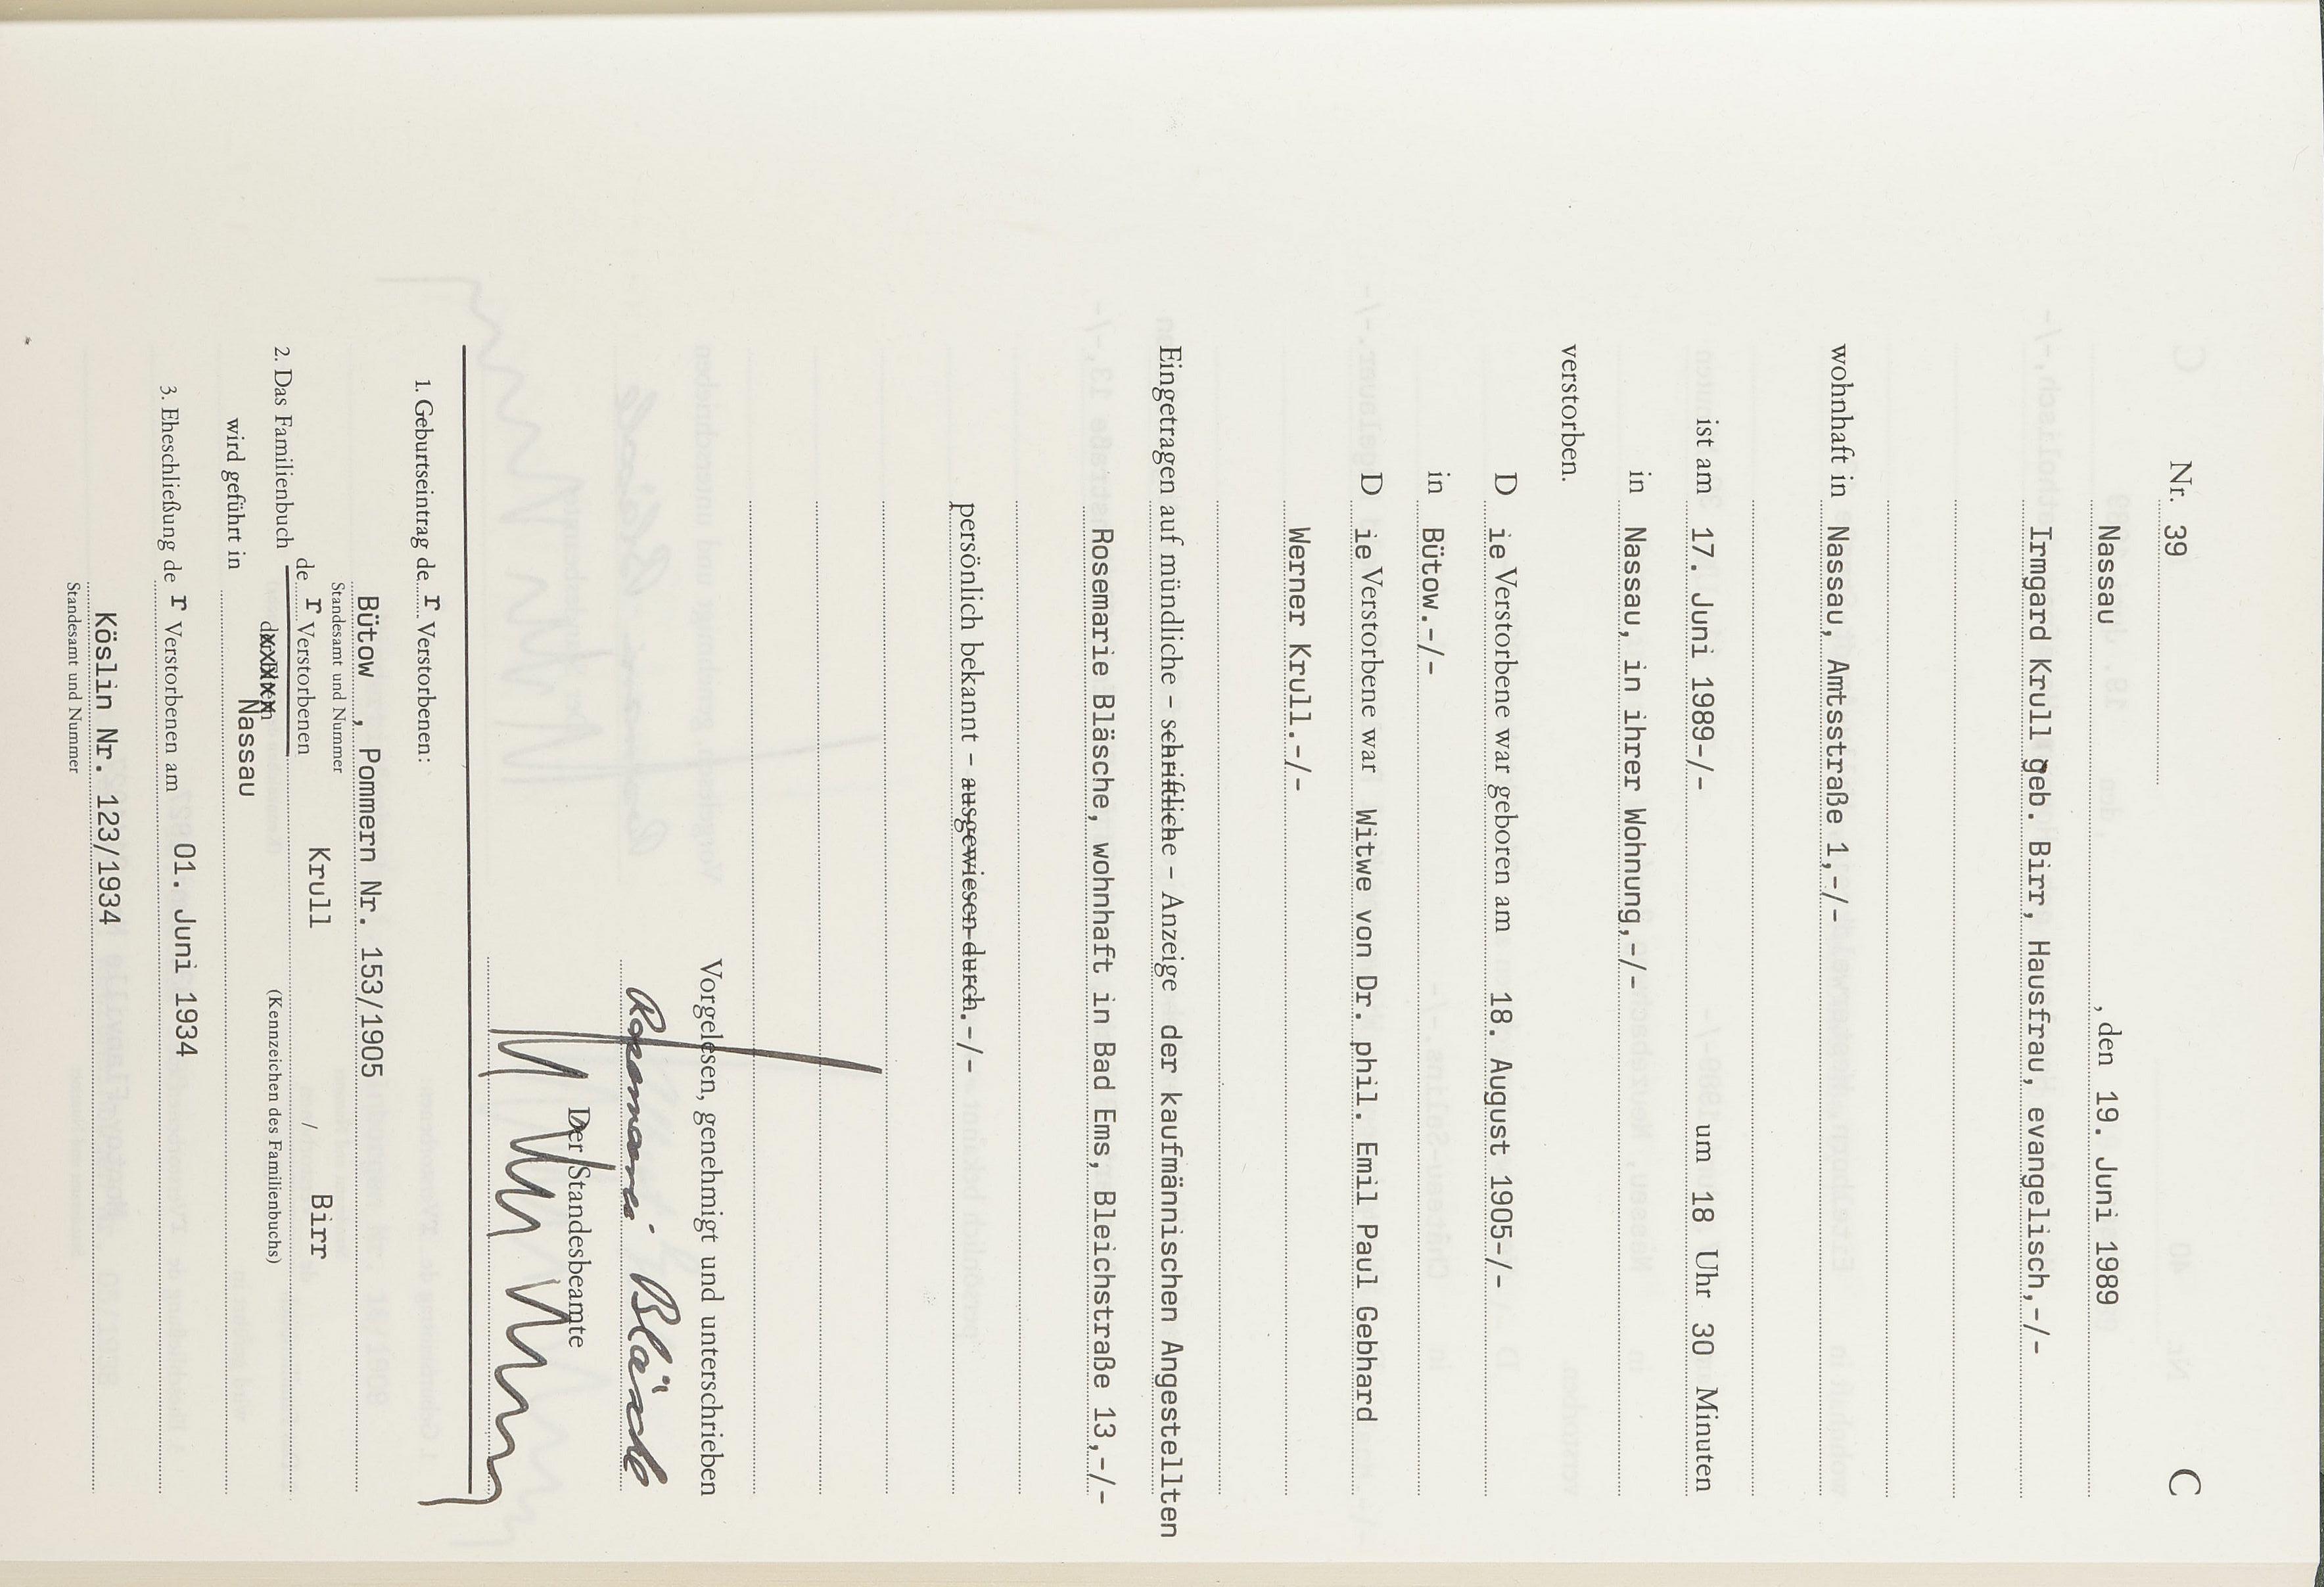 C
Nr. 39
Nassau , den 19. Juni 1989
Irmgard Krull geb. Birr, Hausfrau, evangelisch,-/-
wohnhaft in Nassau, Amtsstraße 1,-/-
ist am 17. Juni 1989-/- um 18 Uhr 30 Minuten
in Nassau, in ihrer Wohnung,-/-
verstorben.
D ie Verstorbene war geboren am 18. August 1905-/-
in Bütow.-/-
D ie Verstorbene war Witwe von Dr. phil. Emil Paul Gebhard
Werner Krull.-/-
Eingetragen auf mündliche – schriftliche – Anzeige der kaufmännischen Angestellten
Rosemarie Bläsche, wohnhaft in Bad Ems, Bleichstraße 13,-/-
persönlich bekannt – ausgewiesen durch.-/-
Vorgelesen, genehmigt und unterschrieben
Rosemarei Bläsche
Der Standesbeamte
1. Geburtseintrag de r Verstorbenen:
Bütow , Pommern Nr. 153/1905
Standesamt und Nummer
2. Das Familienbuch de r Verstorbenen Krull / Birr
(Kennzeichen des Familienbuchs)
wird geführt in Nassau
3. Eheschließung de r Verstorbenen am 01. Juni 1934
Köslin Nr. 123/1934
Standesamt und Nummer